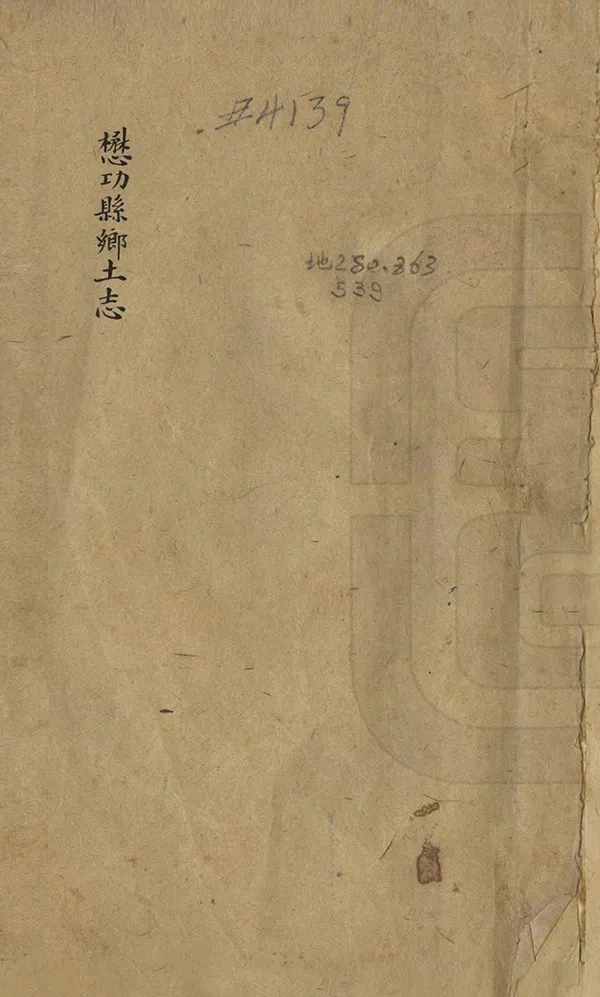 #4139
懋功縣鄉土志
地280.263
539